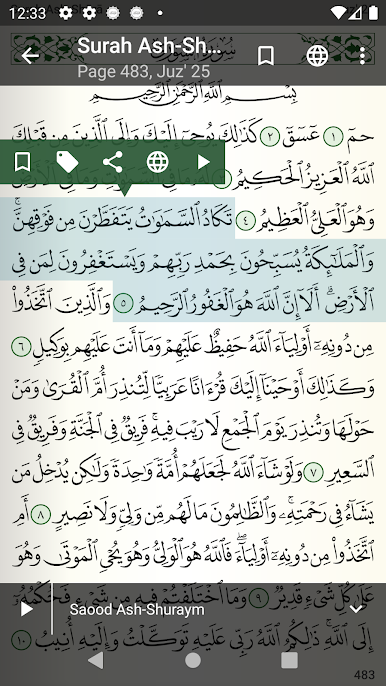 12:33
Surah Ash-Sh...
Page 483, Juz' 25
بِسْمِ ٱللَّهِ ٱلرَّحْمَٰنِ ٱلرَّحِيمِ
حمٓ ١ عٓسٓقٓ ٢ كَذَٰلِكَ يُوحِىٓ إِلَيْكَ وَإِلَى ٱلَّذِينَ مِن قَبْلِكَ
ٱللَّهُ ٱلْعَزِيزُ ٱلْحَكِيمُ
وَهُوَ ٱلْعَلِىُّ ٱلْعَظِيمُ ٤ تَكَادُ ٱلسَّمَٰوَٰتُ يَتَفَطَّرْنَ مِن فَوْقِهِنَّ ۚ
وَٱلْمَلَٰٓئِكَةُ يُسَبِّحُونَ بِحَمْدِ رَبِّهِمْ وَيَسْتَغْفِرُونَ لِمَن فِى
ٱلْأَرْضِ ۗ أَلَآ إِنَّ ٱللَّهَ هُوَ ٱلْغَفُورُ ٱلرَّحِيمُ ٥ وَٱلَّذِينَ ٱتَّخَذُوا۟
مِن دُونِهِۦٓ أَوْلِيَآءَ ٱللَّهُ حَفِيظٌ عَلَيْهِمْ وَمَآ أَنتَ عَلَيْهِم بِوَكِيلٍ ٦
وَكَذَٰلِكَ أَوْحَيْنَآ إِلَيْكَ قُرْءَانًا عَرَبِيًّا لِّتُنذِرَ أُمَّ ٱلْقُرَىٰ وَمَنْ
حَوْلَهَا وَتُنذِرَ يَوْمَ ٱلْجَمْعِ لَا رَيْبَ فِيهِ ۚ فَرِيقٌ فِى ٱلْجَنَّةِ وَفَرِيقٌ فِى
ٱلسَّعِيرِ ٧ وَلَوْ شَآءَ ٱللَّهُ لَجَعَلَهُمْ أُمَّةً وَٰحِدَةً وَلَٰكِن يُدْخِلُ مَن
يَشَآءُ فِى رَحْمَتِهِۦ ۚ وَٱلظَّٰلِمُونَ مَا لَهُم مِّن وَلِىٍّ وَلَا نَصِيرٍ ٨ أَمِ
ٱتَّخَذُوا۟ مِن دُونِهِۦٓ أَوْلِيَآءَ ۖ فَٱللَّهُ هُوَ ٱلْوَلِىُّ وَهُوَ يُحْىِ ٱلْمَوْتَىٰ وَهُوَ
عَلَىٰ كُلِّ شَىْءٍ قَدِيرٌ ٩ وَمَا ٱخْتَلَفْتُمْ فِيهِ مِن شَىْءٍ فَحُكْمُهُۥٓ
Saood Ash-Shuraym
إِلَى ٱللَّهِ ۚ ذَٰلِكُمُ ٱللَّهُ رَبِّى عَلَيْهِ تَوَكَّلْتُ وَإِلَيْهِ أُنِيبُ ١٠
483